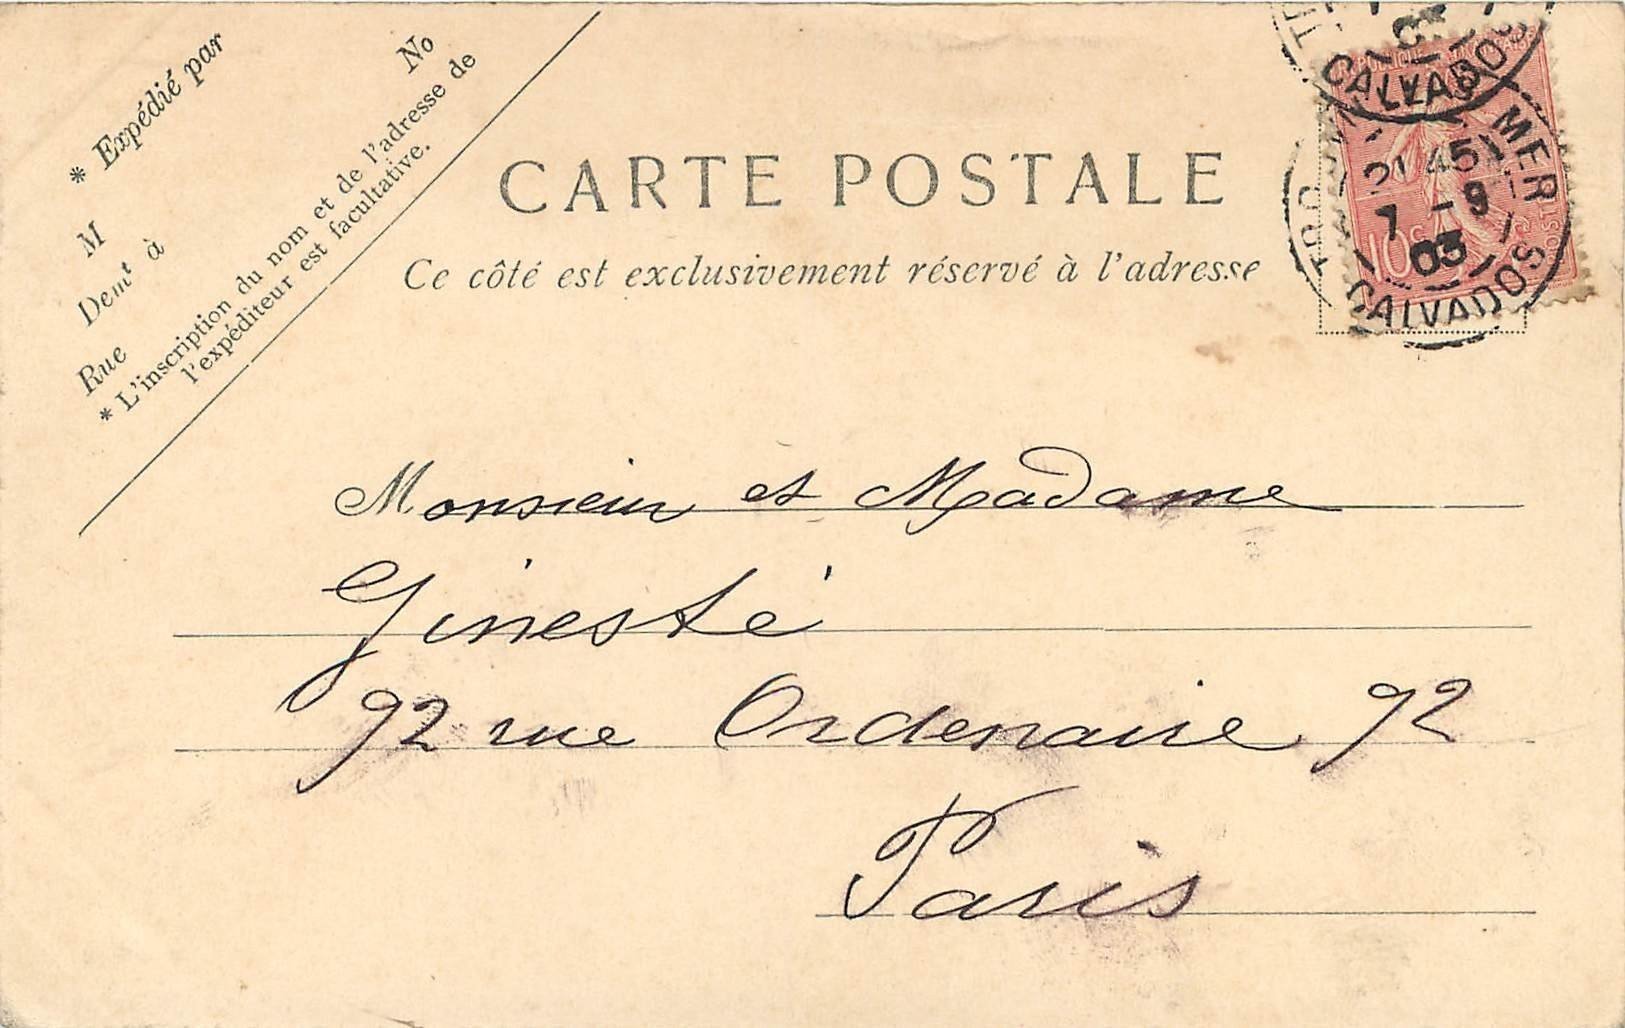 * Expédié par
M
Demt à
Rue
No
* L'inscription du nom et de l'adresse de
l'expéditeur est facultative.
CARTE POSTALE
Ce côté est exclusivement réservé à l'adresse
CALVADOS
MER
45
7 - 9
03
CALVADOS
10c
Monsieur et Madame
Ginesté
92 rue Ordenaire 92
Paris